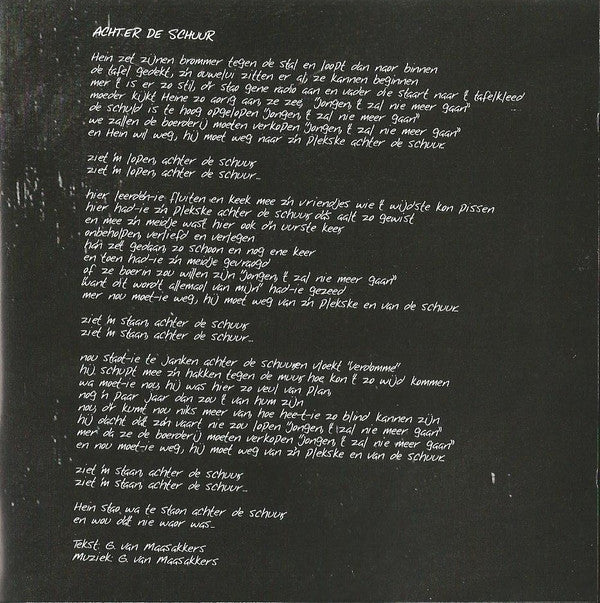 ACHTER DE SCHUUR
Hein zet zijnen brommer tegen de stal en loopt dan naor binnen
de tafel gedekt, z'n ouwelui zitten er al, ze kannen beginnen
mer 't is er zo stil, d'r stao gene radio aan en vader die staart naar 't tafelkleed
moeder kijkt Heine zo aorig aan, ze zee, "jongen, 't zal nie meer gaan"
de schuld is te hoog opgelopen "jongen, 't zal nie meer gaan"
we zallen de boerderij moeten verkopen "jongen, 't zal nie meer gaan"
en Hein wil weg, hij moet weg naar z'n plekske achter de schuur.
ziet 'm lopen, achter de schuur,
ziet 'm lopen, achter de schuur...
hier leerden-ie fluiten en keek mee z'n vriendjes wie 't wijdste kon pissen
hier had-ie z'n plekske achter de schuur, dås aalt zo gewist
en mee z'n meidje wast hier ook d'n uurste keer,
onbeholpen, verliefd en verlegen
han zet gedaan, zo schoon en nog ene keer
en toen had-ie z'n meidje gevraogd
of ze boerin zou willen zijn "jongen, 't zal nie meer gaan"
"want dit wordt allemaol van mijn" had-ie gezeed
mer nou moet-ie weg, hij moet weg van z'n plekske en van de schuur.
ziet 'm staan, achter de schuur,
ziet 'm staan, achter de schuur...
nou staot-ie te janken achter de schuur, en vloekt "verdomme"
hij schupt mee z'n hakken tegen de muur, hoe kon 't zo wijd kommen
wa moet-ie nou, hij was hier zo veul van plan,
nog 'n paar jaar dan zou 't van hum zijn
nou, d'r kumt nou niks meer van, hoe hee-t-ie zo blind kannen zijn
hij dacht dåt zo'n vaart nie zou lopen "jongen, 't zal nie meer gaan"
mer da ze de boerderij moeten verkopen "jongen, 't zal nie meer gaan"
en nou moet-ie weg, hij moet weg van z'n plekske en van de schuur.
ziet 'm staan, achter de schuur,
ziet 'm staan, achter de schuur...
Hein stao wa te staon achter de schuur,
en wou dåt nie waor was...
Tekst: G. van Maasakkers
Muziek: G. van Maasakkers